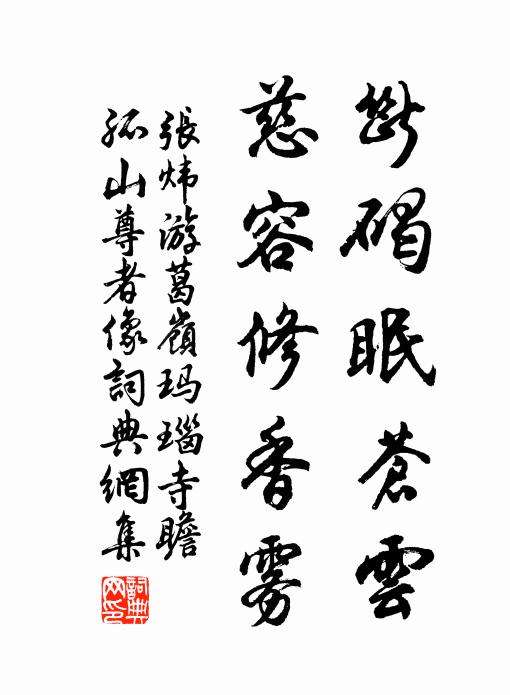 斷碣眠蒼雲
慈容修香霧
張炜游葛嶺玛瑙寺瞻
孤山尊者像詞典網集
詞典网印